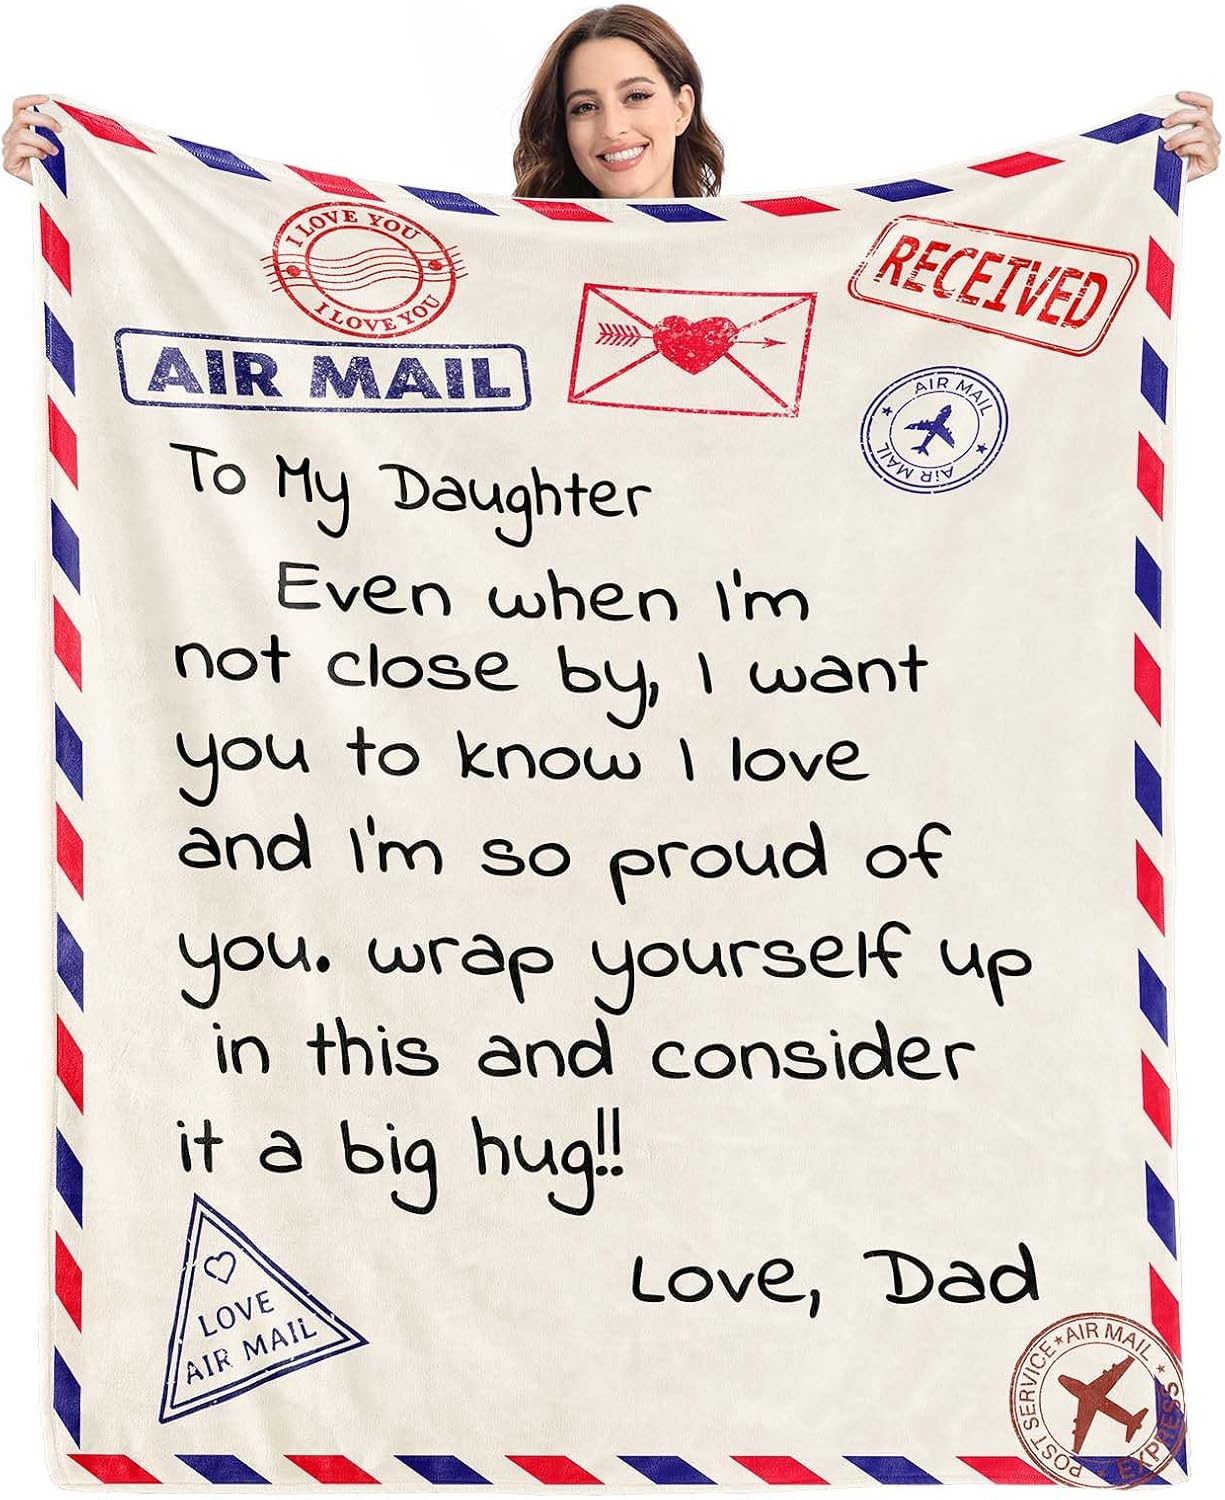 I LOVE YOU
I LOVE YOU
RECEIVED
AIR MAIL
AIR MAIL
AIR MAIL
To My Daughter
Even when I'm
not close by, I want
you to know I love
and I'm so proud of
you. wrap yourself up
in this and consider
it a big hug!!
Love, Dad
LOVE
AIR MAIL
POST SERVICE★AIR MAIL★EXPRESS★